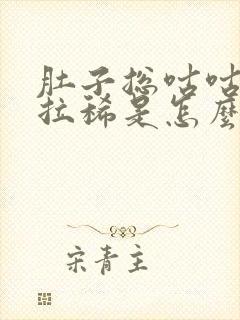 肚子总咕咕
拉稀是怎麽
宋青主